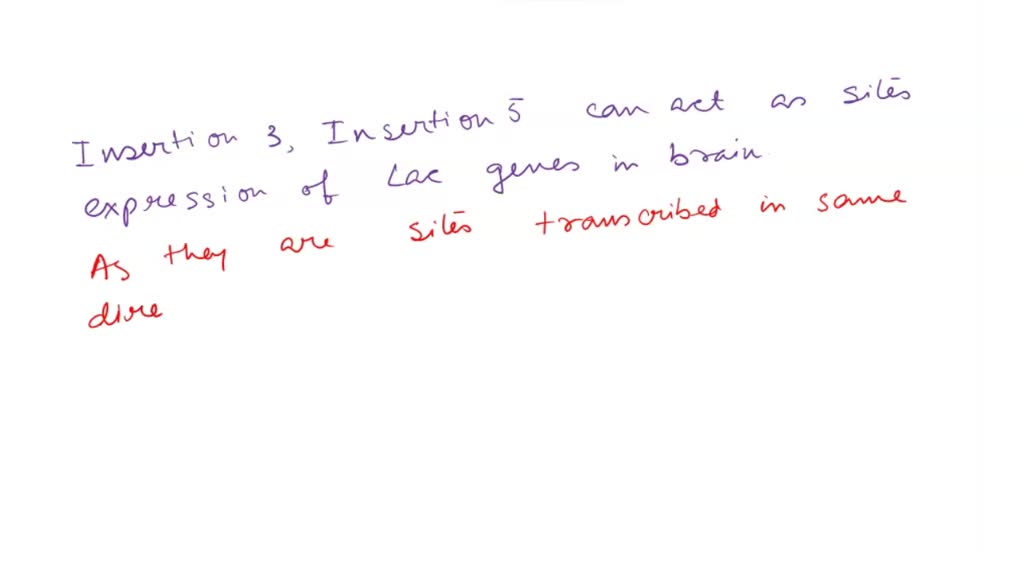 Insertion 3, Insertion 5 can act as sites
expression of Lac genes in brain.
As they are sites transcribed in same
dire